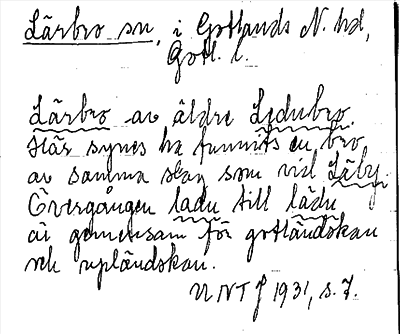 Lärbro sn, i Gotlands N. hd,
Gotl. l.
Lärbro av äldre Ledubro.
Här synes ha funnits en bro
av samma slag som vid Läby.
Övergången ladu till lädu
är gemensam för gotländskan
och upländskan.
UNT 1931, s. 7.